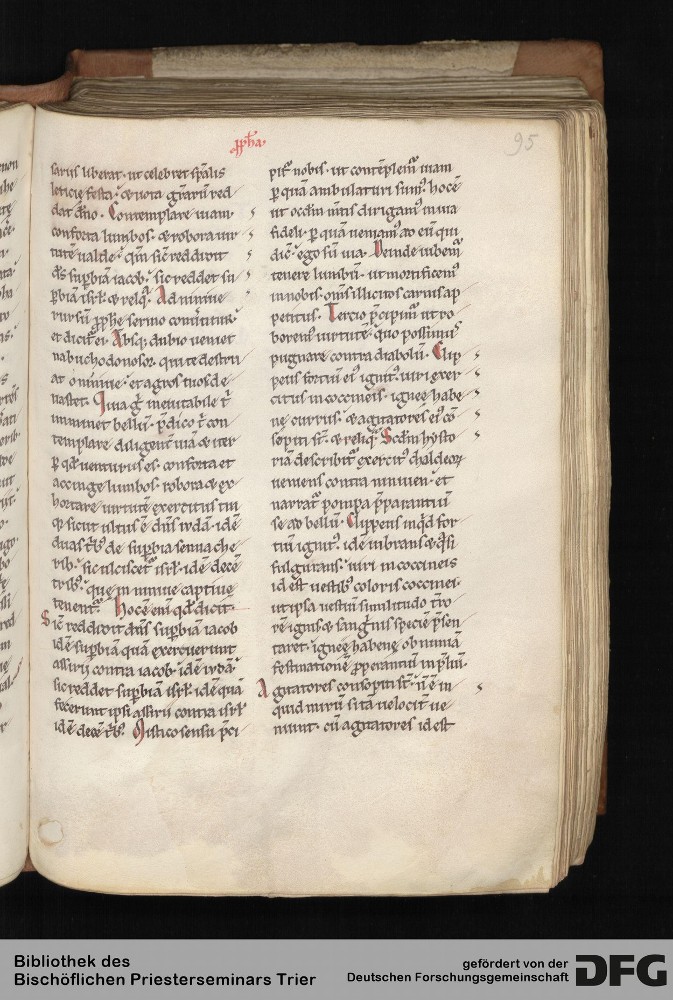 ꝓph̄a
95
sariis liberat· ut celebret sp̄alis
leticię festa· & uota gr̄arū red
dat dn̄o· Contemplare uiam·
conforta lumbos· & robora uir
tutē ualde· qm̄ sic̄ reddidit
dn̄s suꝑbiā iacob· sic reddet su
ꝑbiā isrl̄· & reliq̄· Ad niniue
rursū ꝓph̄e sermo
et dicit̄ ei· Absq; dubio ueniet
nabuchodonosor qui te destru
at o niniue· et agros tuos de
uastet· Quia g̊ ineuitabile t̄
imminet bellū· p̄dico t̄ con
templare diligent̄ uiā & iter
ꝑ qd̄ uenturus es· conforta et
accinge lumbos· robora & ex
hortare uirtutē exercitus tui
q̄ sicut ultus ē dn̄s iudā· idē
duas tb̄ꝰ de suꝑbia sennache
rib· sic ulciscet̄ isrl̄· idē decē
tribꝰ· que in niniue captiue
tenent̄· Hoc ē eni qd̄ dicit·
Sic̄ reddidit dn̄s suꝑbiā iacob
idē suꝑbiā quā exercuerunt
assirii contra iacob· idē iudā·
sic reddet suꝑbiā isrl̄· idē quā
fecerunt ipsi assirii contra isrl̄
idē decē tb̄ꝰ· Mistico sensu p̄ci
pit̄ nobis· ut contēplem̄ uiam
ꝑ quā ambulaturi sumꝰ· hoc ē
ut occl̄m mtis dirigamꝰ in uia
fidei· ꝑ quā ueniamꝰ ad eū qui
dic̄· ego sū uia· Deinde iubem̄
tenere lumbū· ut mortificemꝰ
in nobis om̄s illicitos carnis ap
petitus· Tercio p̄cipim̄ ut ro
boremꝰ uirtutē· quo possimꝰ
pugnare contra diabolū· Clip
peus fortiū eiꝰ ignitꝰ· uiri exer
citus in coccineis· igneę habe
nę currus· & agitatores eiꝰ cō
sopiti st̄· & reliq̄· Scd̄m hysto
riā describit̄ exercitꝰ chaldeoꝝ
ueniens contra niniuen· et
narrat̄ pompa p̄parantiū
se ad bellū· Clippeus inq̄d for
tiū ignitꝰ· idē uibrans & q̄si
fulgurans· uiri in coccineis
id est uestibꝰ coloris coccinei·
ut ipsa uestiū similitudo t̄ro
rē ignis & sanḡnis speciē p̄sen
taret· igneę habenę ob nimiā
festinationē ꝓperantiū in p̄liū·
Agitatores consopiti st̄· n̄ ē in
quid mirū si tā uelocit̄ ue
niunt· cū agitatores id est
Bibliothek des
Bischöflichen Priesterseminars Trier
gefördert von der
Deutschen Forschungsgemeinschaft
DFG